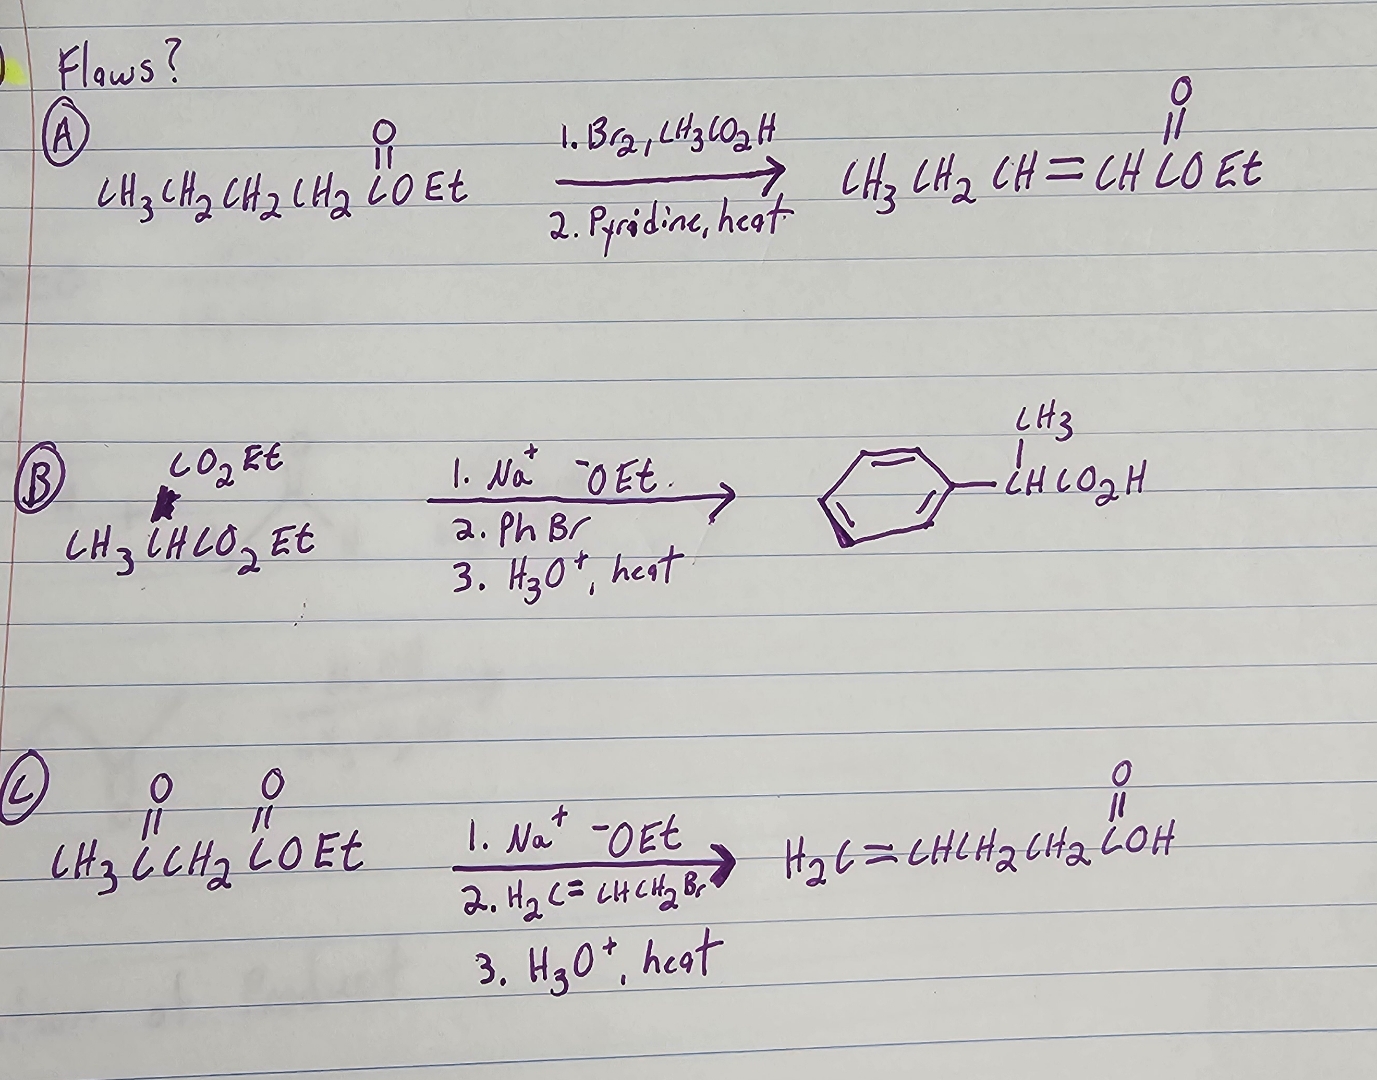 Flaws?
A
O
CH3CH2CH2CH2COEt
1. Br2, CH3CO2H
2. Pyridine, heat
O
CH3CH2CH=CHCOEt
B
CO2Et
CH3CHCO2Et
1. Na+ -OEt.
2. PhBr
3. H3O+, heat
CH3
CHCO2H
C
O O
CH3CCH2COEt
1. Na+ -OEt
2. H2C=CHCH2Br
3. H3O+, heat
O
H2C=CHCH2CH2COH